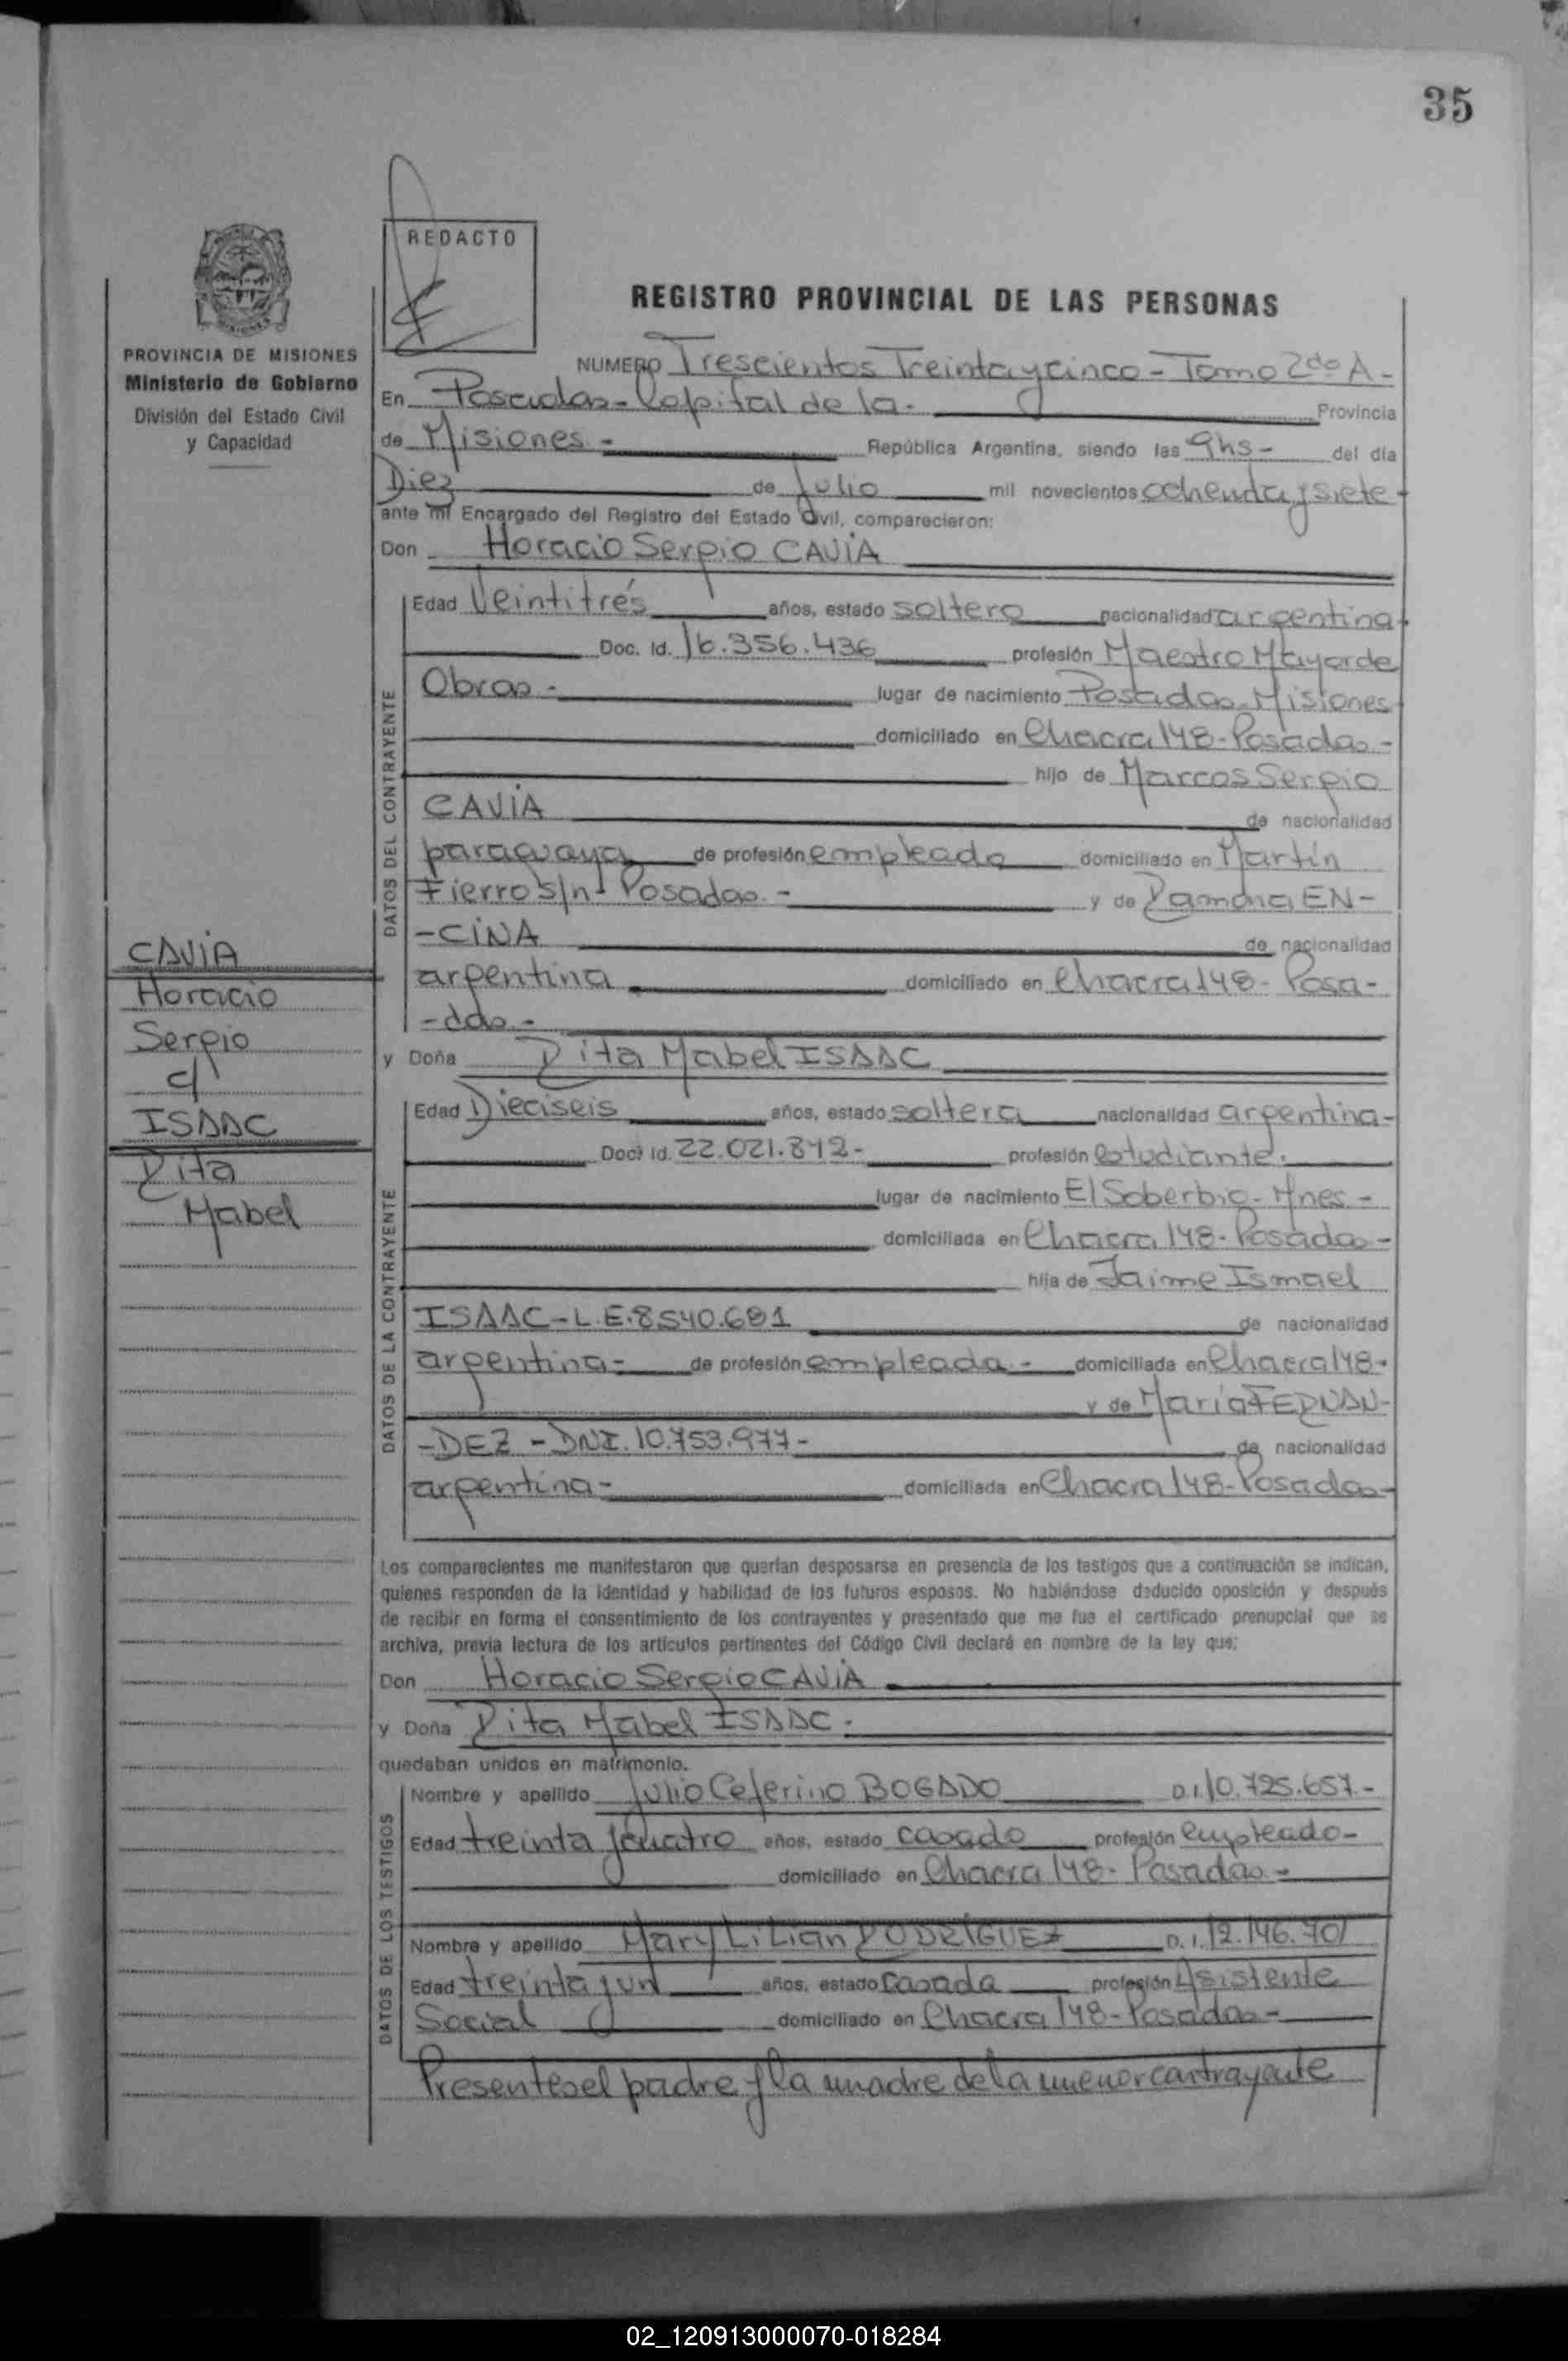 35
REDACTO
REGISTRO PROVINCIAL DE LAS PERSONAS
PROVINCIA DE MISIONES
Ministerio de Gobierno
División del Estado Civil
y Capacidad
NUMERO Trescientos Treinta y cinco - Tomo 2do A -
En Posadas - Capital de la - Provincia
de Misiones - República Argentina, siendo las 9hs - del día
Diez de Julio mil novecientos ochenta y siete -
ante mí Encargado del Registro del Estado Civil, comparecieron:
Don Horacio Sergio CAVIA
DATOS DEL CONTRAYENTE
Edad Veintitrés años, estado soltero nacionalidad argentina -
Doc. Id. 16.356.436 profesión Maestro Mayor de
Obras - lugar de nacimiento Posadas - Misiones
domiciliado en Chacra 148 - Posadas -
hijo de Marcos Sergio
CAVIA de nacionalidad
paraguaya de profesión empleado domiciliado en Martín
Fierro s/n - Posadas - y de Ramona EN-
-CINA de nacionalidad
argentina domiciliado en Chacra 148 - Posa-
-das -
CAVIA
Horacio
Sergio
c/
ISAAC
Rita
Mabel
y Doña Rita Mabel ISAAC
DATOS DE LA CONTRAYENTE
Edad Dieciseis años, estado soltera nacionalidad argentina -
Doc. Id. 22.021.842 - profesión estudiante.
lugar de nacimiento El Soberbio - Mnes -
domiciliada en Chacra 148 - Posadas -
hija de Jaime Ismael
ISAAC - L.E. 8540.681 de nacionalidad
argentina - de profesión empleada - domiciliada en Chacra 148 -
y de María FERNAN-
-DEZ - DNI. 10.753.977 - de nacionalidad
argentina - domiciliada en Chacra 148 - Posadas -
Los comparecientes me manifestaron que querían desposarse en presencia de los testigos que a continuación se indican,
quienes responden de la identidad y habilidad de los futuros esposos. No habiéndose deducido oposición y después
de recibir en forma el consentimiento de los contrayentes y presentado que me fue el certificado prenupcial que se
archiva, previa lectura de los artículos pertinentes del Código Civil declaré en nombre de la ley que;
Don Horacio Sergio CAVIA
y Doña Rita Mabel ISAAC -
quedaban unidos en matrimonio.
DATOS DE LOS TESTIGOS
Nombre y apellido Julio Ceferino BOGADO D.I. 10.725.657 -
Edad treinta y cuatro años, estado casado profesión empleado -
domiciliado en Chacra 148 - Posadas -
Nombre y apellido Mary Lilian RODRIGUEZ D.I. 12.146.701
Edad treinta y un años, estado casada profesión Asistente
Social domiciliado en Chacra 148 - Posadas -
Presentes el padre y la madre de la menor contrayente
02_120913000070-018284